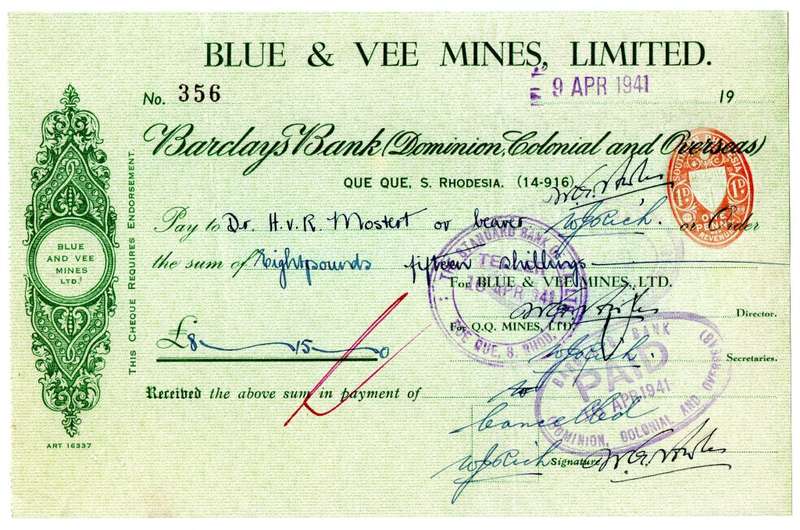 BLUE & VEE MINES, LIMITED.
No. 356
9 APR 1941
19
Barclays Bank (Dominion, Colonial and Overseas)
QUE QUE, S. RHODESIA. (14-916)
Pay to Dr. H.V.R. Mostert or bearer or Order
the sum of Eight pounds fifteen shillings
For BLUE & VEE MINES, LTD.
Director.
For Q.Q. MINES, LTD.
£8 15 0
Secretaries.
Received the above sum in payment of
Cancelled
Signature
THIS CHEQUE REQUIRES ENDORSEMENT.
BLUE
AND VEE
MINES
LTD.
ART 16337
THE STANDARD BANK OF
TELLER
APR 941
QUE QUE, S. RHOD.
BANK
PAID
APR 1941
DOMINION, COLONIAL AND OVERSEAS
1D
1D
ONE
PENNY
REVENUE